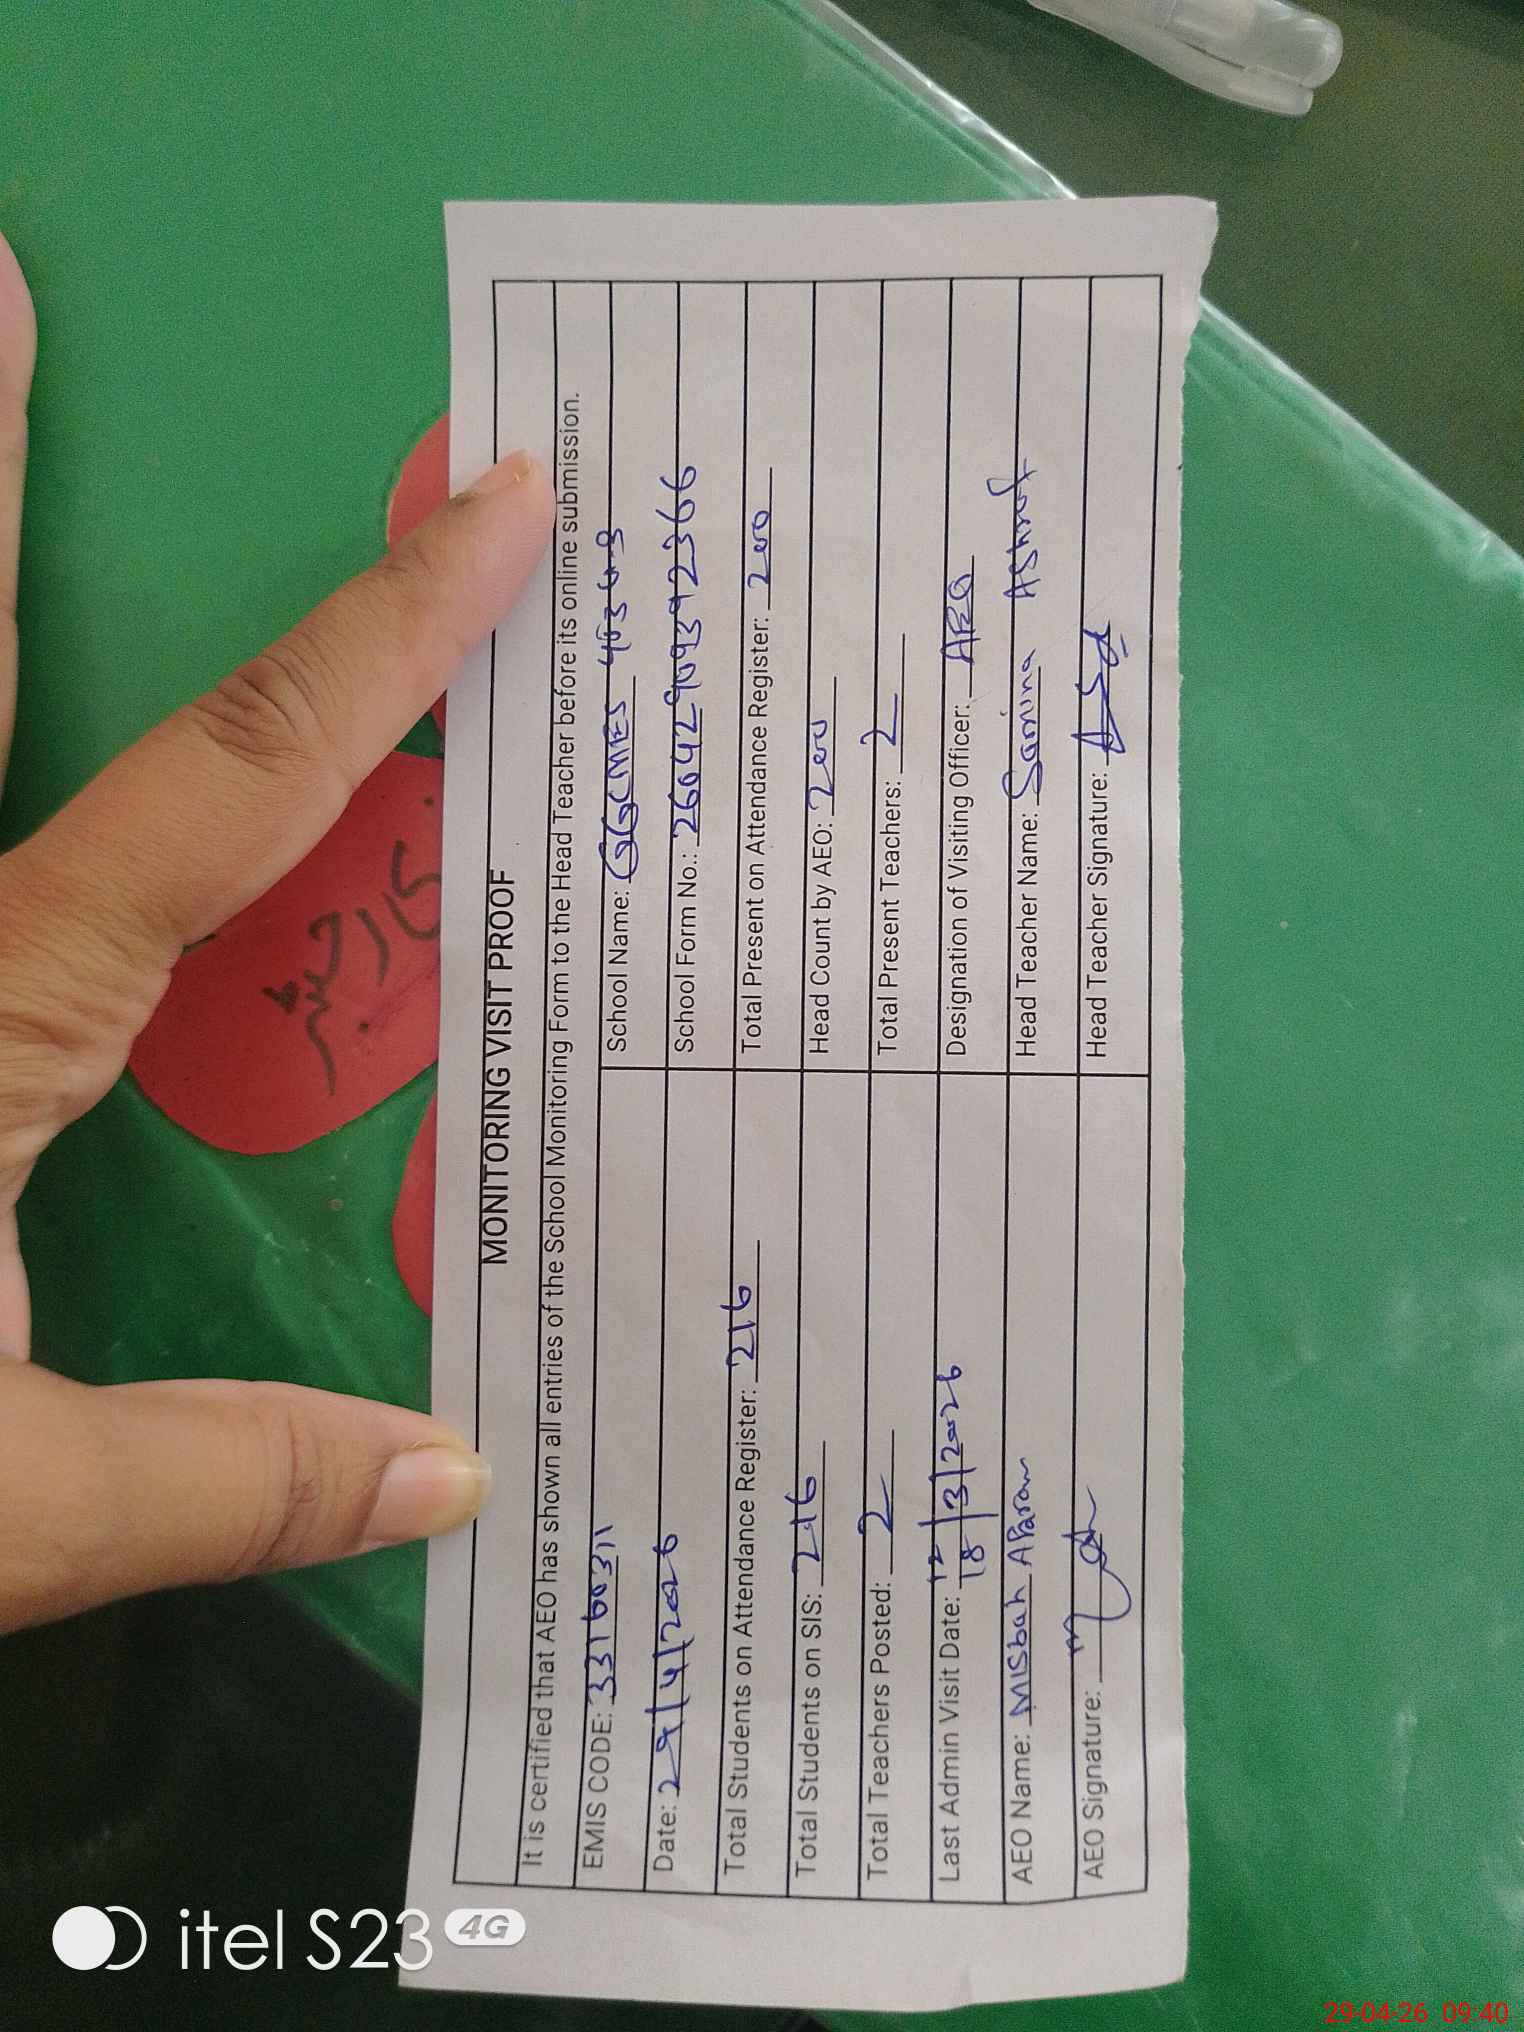 MONITORING VISIT PROOF
It is certified that AEO has shown all entries of the School Monitoring Form to the Head Teacher before its online submission.
EMIS CODE: 33160311 School Name: GGCMES
Date: 29/4/2026 School Form No.: 26042909392366
Total Students on Attendance Register: 216 Total Present on Attendance Register: Zero
Total Students on SIS: 216 Head Count by AEO: Zero
Total Teachers Posted: 2 Total Present Teachers: 2
Last Admin Visit Date: 18/3/2026 Designation of Visiting Officer: AEO
AEO Name: Misbah Head Teacher Name: Samina Ashraf
AEO Signature: Head Teacher Signature:
itel S23 4G
29-04-26 09:40